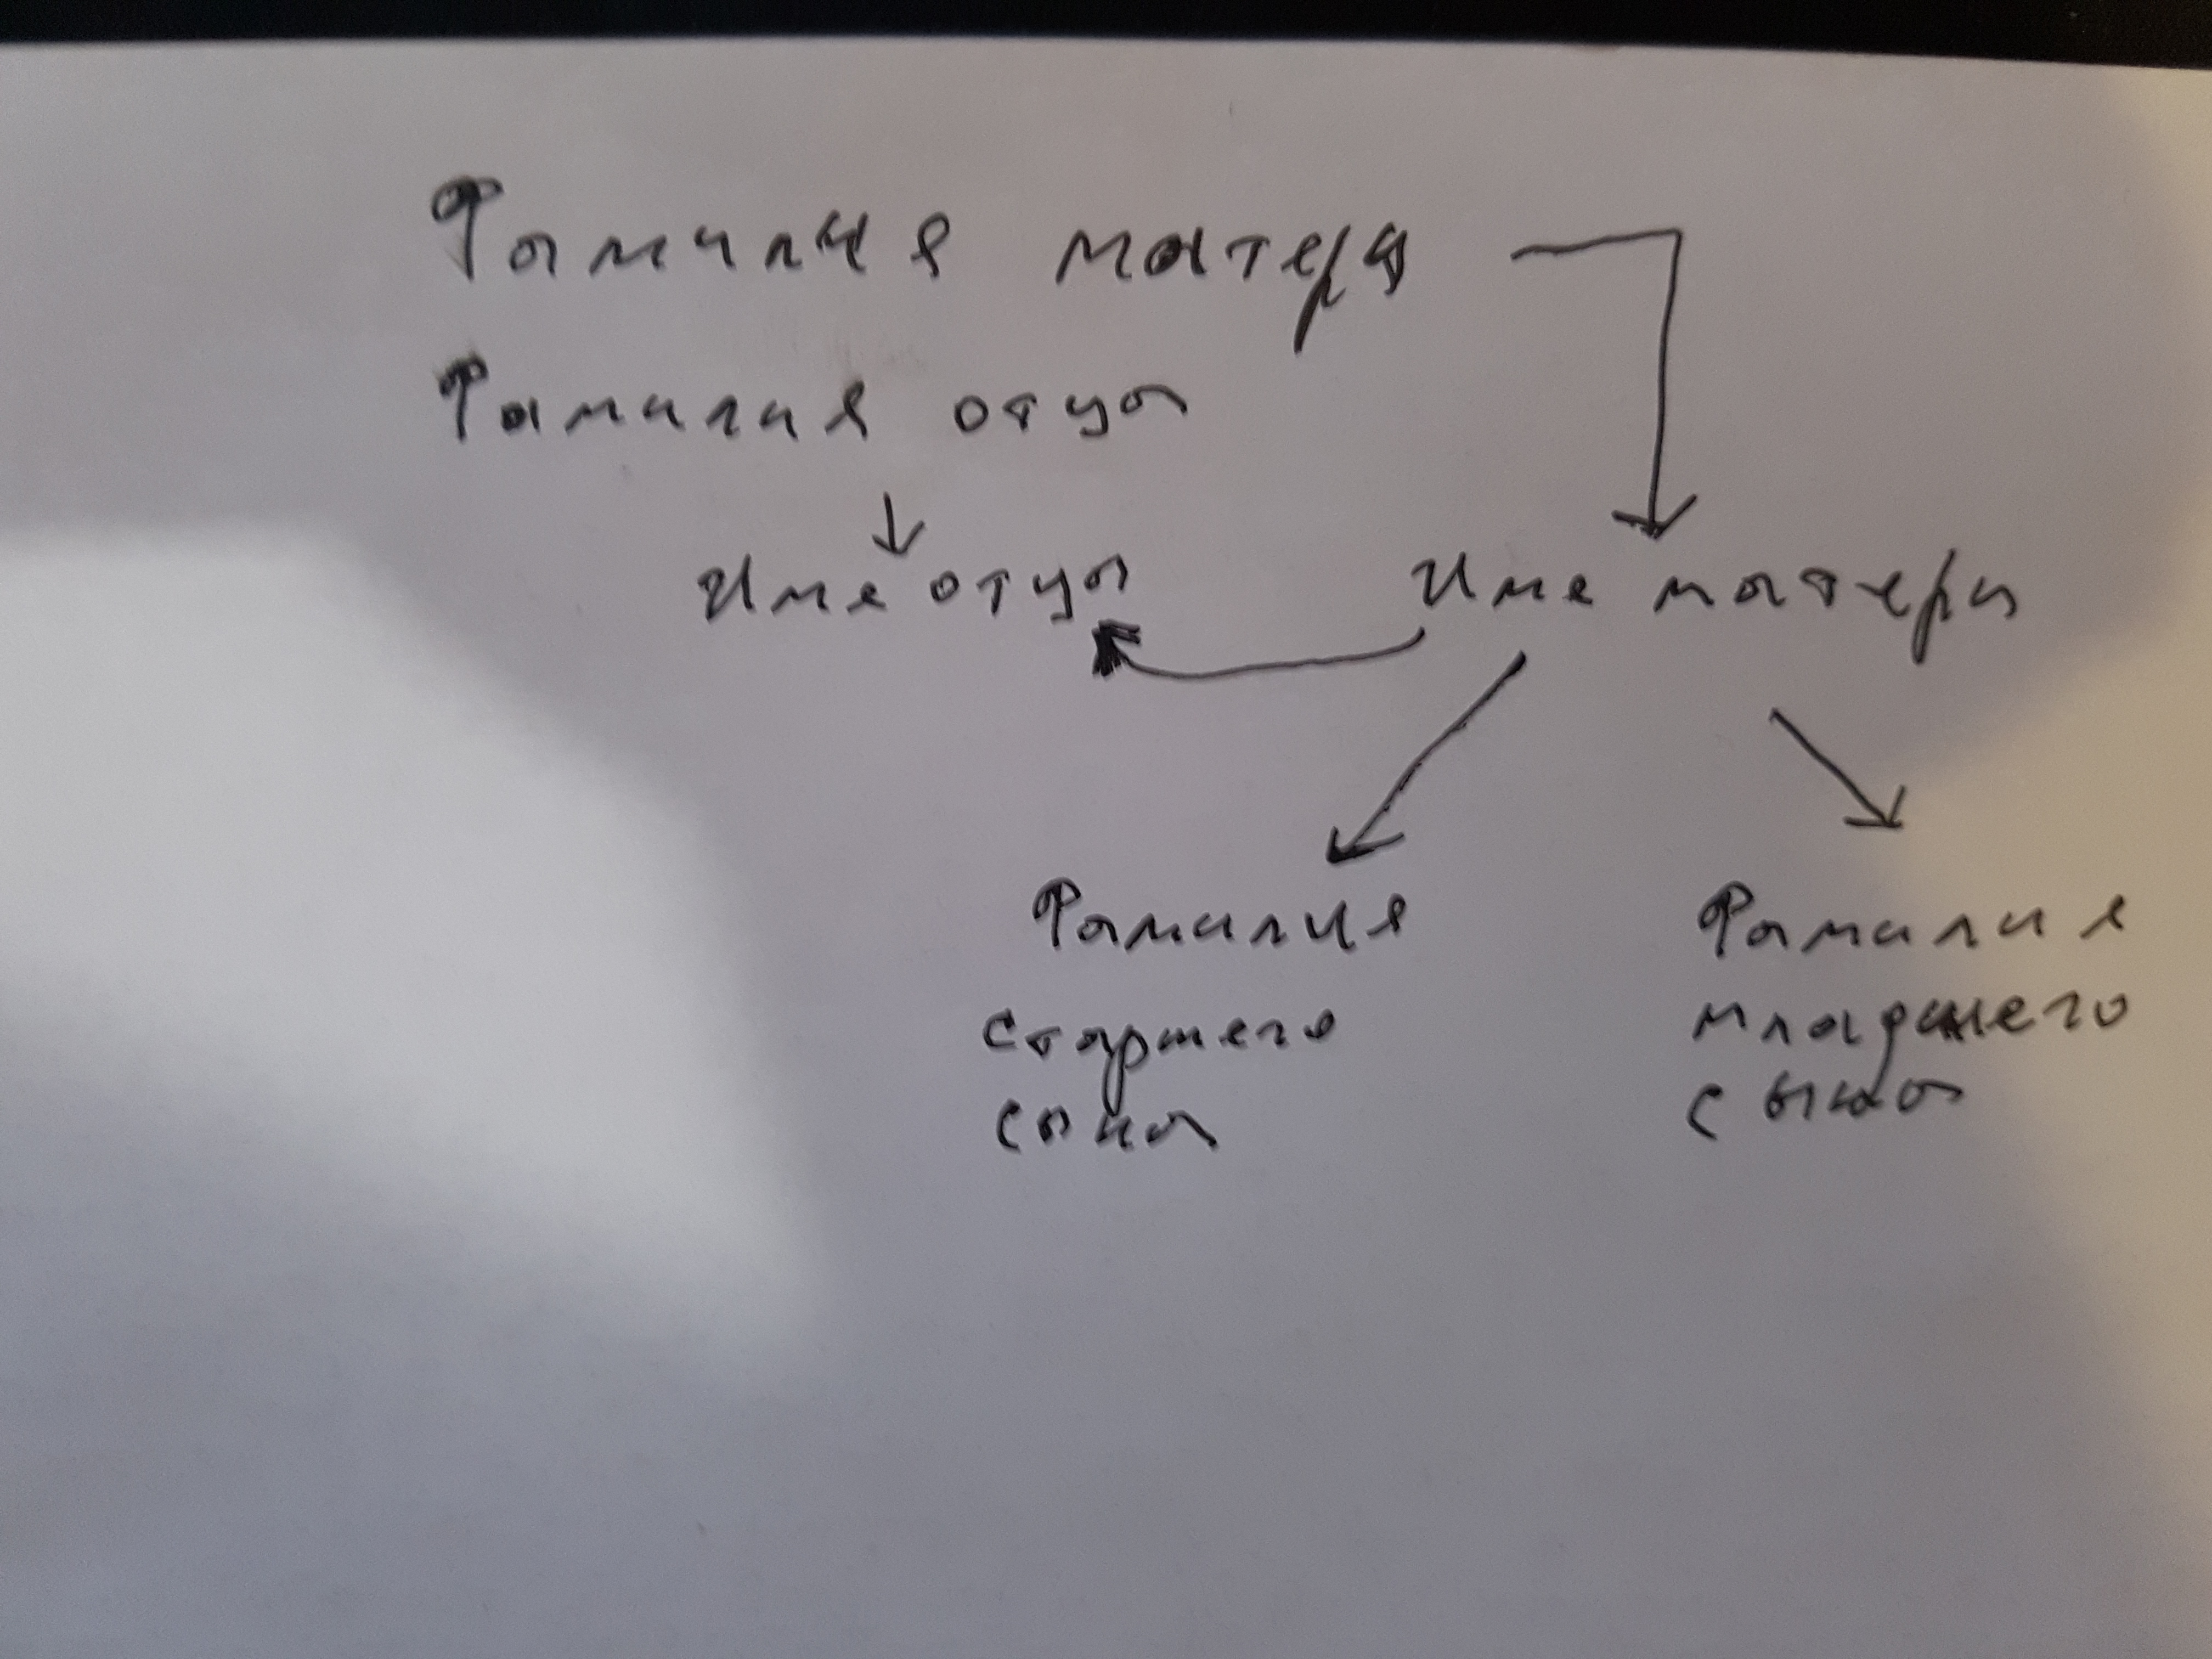 Фамилия матери
Фамилия отца
Имя отца
Имя матери
Фамилия
старшего
сына
Фамилия
младшего
сына